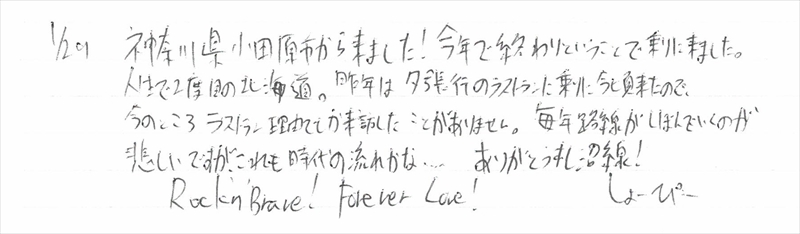 神奈川県小田原市から来ました!今年で終わりということで乗りに来ました。
人生で2度目の北海道。昨年は夕張行のラストランに乗りに今頃来たので、
今のところラストラン理由でしか来訪したことがありません。毎年路線がしぼんでいくのが
悲しいですがこれも時代の流れかな… ありがとう札沼線!
Rock'n'Brave! Forever Love! しょーぴー